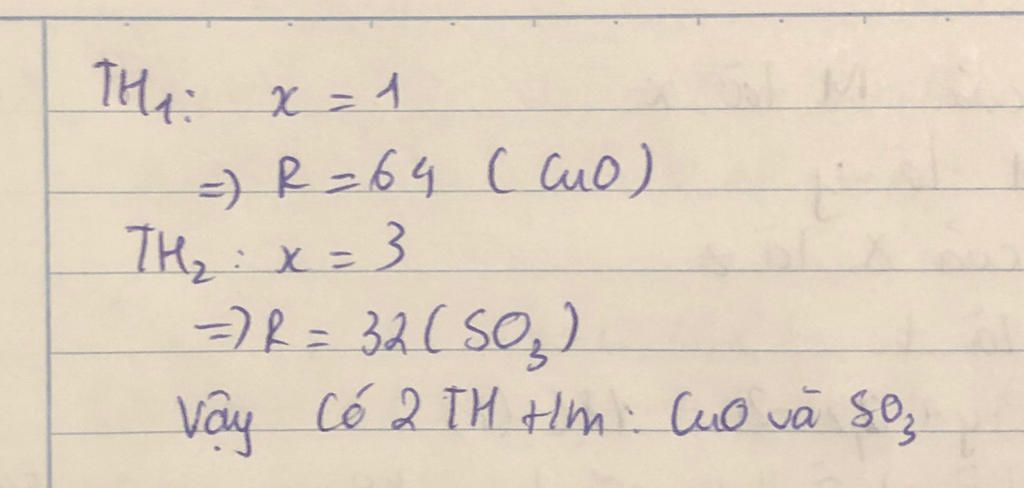 TH₁: x = 1
=) R = 64 (CuO)
TH₂: x = 3
=) R = 32 (SO₃)
Vậy có 2 TH +1m: CuO và SO₃